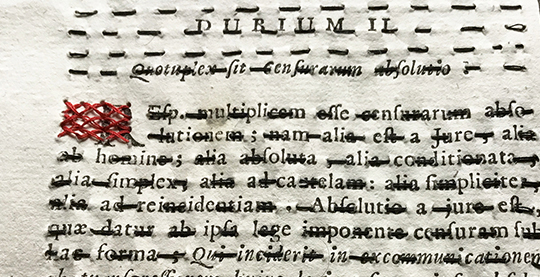 DUBIUM II.
Quotuplex ſit Cenſurarum abſolutio ?
Eſp. multiplicem eſſe cenſurarum abſo-
lutionem ; nam alia eſt a Jure, alia
ab homine ; alia abſoluta , alia conditionata,
alia ſimplex, alia ad cautelam: alia ſimpliciter,
alia ad reincidentiam . Abſolutio a jure eſt,
quæ datur ab ipſa lege imponente cenſuram ſub
hac forma ; Qui inciderit in excommunicationem